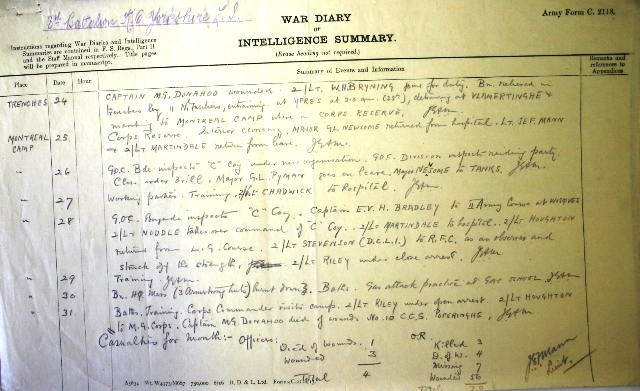 8th Battalion K.O. Yorkshire L.I.
WAR DIARY
OF
INTELLIGENCE SUMMARY.
(Erase heading not required.)
Army Form C. 2118.
Instructions regarding War Diaries and Intelligence
Summaries are contained in F. S. Regs., Part II.
and the Staff Manual respectively. Title pages
will be prepared in manuscript.
Place Date Hour Summary of Events and Information Remarks and references to Appendices
TRENCHES 24 CAPTAIN M.G. DONAHOO wounded. 2/LT. W.H. BRYNING joins for duty. Bn. relieved in
trenches by 11 N. Fusiliers, entraining at YPRES at 2.0 a.m. (25th), detraining at VLAMERTINGHE &
marching to MONTREAL CAMP where in CORPS RESERVE.
MONTREAL CAMP 25 Corps Reserve. Interior economy. MAJOR NEWSOME returned from hospital. LT. J.E.F. MANN
& 2/LT MARTINDALE return from leave.
" 26 G.O.C. Bde inspects "C" Coy under new organisation. G.O.C. Division inspects raiding party.
Close order drill. Major G.L. PYMAN goes on leave, Major NEWSOME to TANKS.
" 27 Working parties. Training. 2/Lt CHADWICK to Hospital.
" 28 G.O.C. Brigade inspects "C" Coy. Captain E.V.H. BRADLEY to II Army Course at WISQUES
2/LT NODDLE takes over command of "C" Coy. 2/LT MARTINDALE to hospital. 2/LT HOUGHTON
returned from L.G. Course. 2/LT STEVENSON (D.C.L.I.) to R.F.C. as an observer and
struck off the strength. 2/LT RILEY under close arrest.
" 29 Training
" 30 Bn. HQ Mess (3 Armstrong huts) burnt down. Baths. Gas attack practice at GAS SCHOOL
" 31 Baths. Training. Corps Commander visits camp. 2/LT RILEY under open arrest. 2/LT HOUGHTON
to M.G. Corps. Captain M.G. DONAHOO died of wounds No. 10 C.C.S. POPERINGHE.
Casualties for month:- Officers: Died of Wounds 1 O.R. Killed 3
Wounded 3 D. of W. 4
Total 4 Missing 7
Wounded 56
J.E.F. Mann
Lieut.
D. D. & L. Ltd.